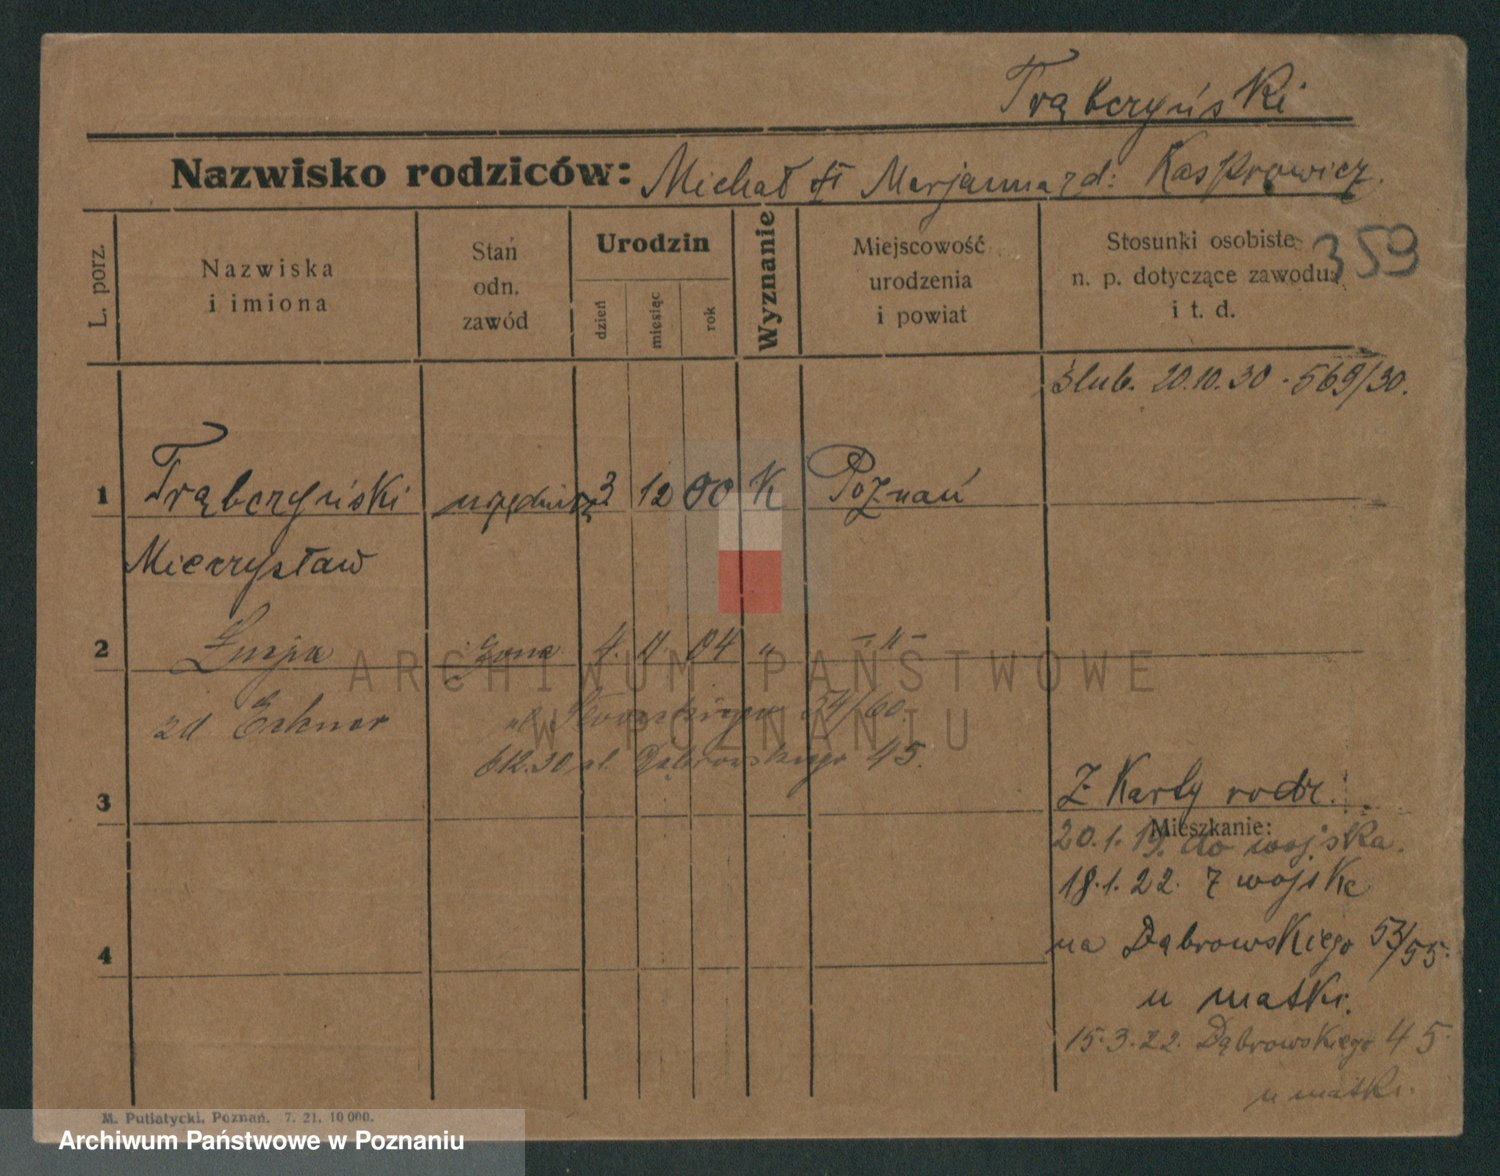 Trąbczyński
Nazwisko rodziców: Michał i Marjanna zd: Kasprowicz.
L. porz.
Nazwiska
i imiona
Stań
odn.
zawód
Urodzin
dzień
miesiąc
rok
Wyznanie
Miejscowość
urodzenia
i powiat
Stosunki osobiste
n. p. dotyczące zawodu
i t. d.
359
ślub. 20.10.30 - 569/30.
1 Trąbczyński urzędnik 3 12 00 K Poznań
Mieczysław
2 Łucja żona 4. 11. 04 " - " -
zd
ul. 54/60.
6.12.30 ul. Dąbrowskiego 45.
3
Z Karty rodz.
Mieszkanie:
20.1.19. do wojska.
18.1.22. z wojska
na Dąbrowskiego 53/55.
u matki.
4
15.3.22. Dąbrowskiego 45.
u matki.
M. Putiatycki, Poznań. 7. 21. 10 000.
ARCHIWUM PAŃSTWOWE
W POZNANIU
Archiwum Państwowe w Poznaniu